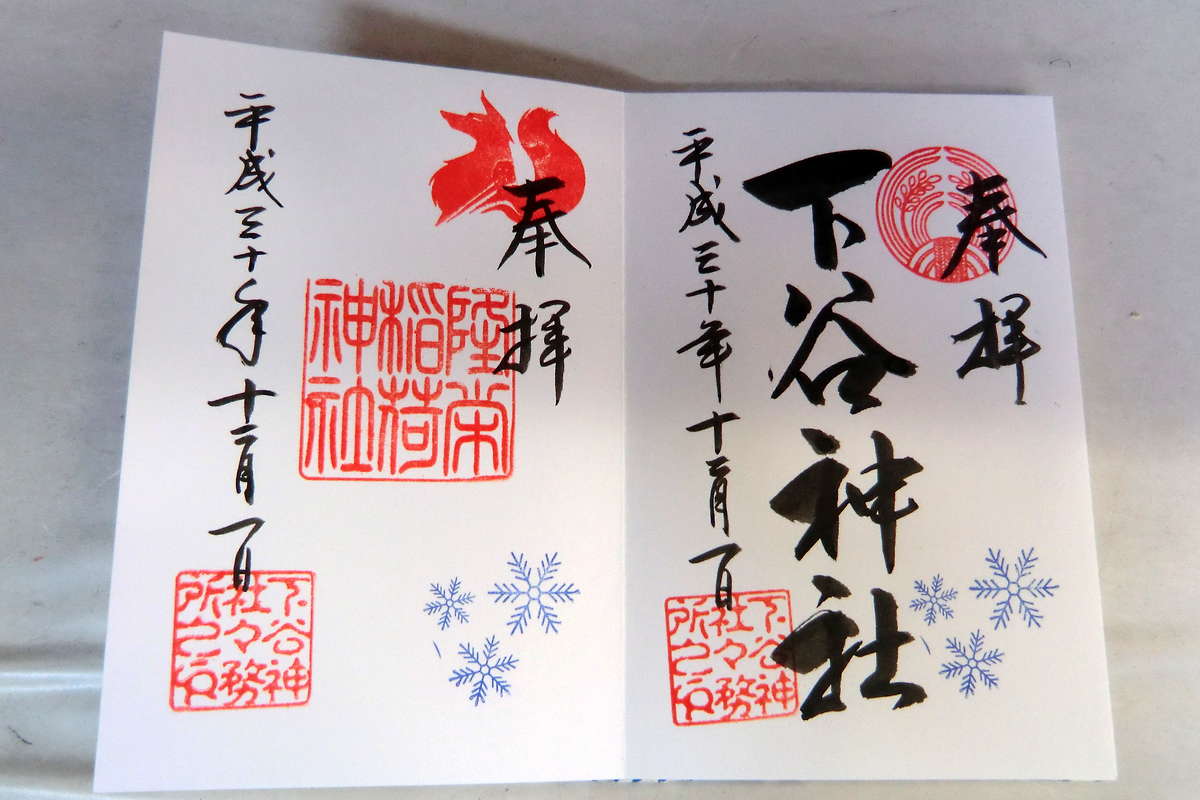 奉拝
下谷神社
平成三十年十二月一日
下谷神
社々務
所之印
奉拝
隆栄
稲荷
神社
平成三十年十二月一日
下谷神
社々務
所之印